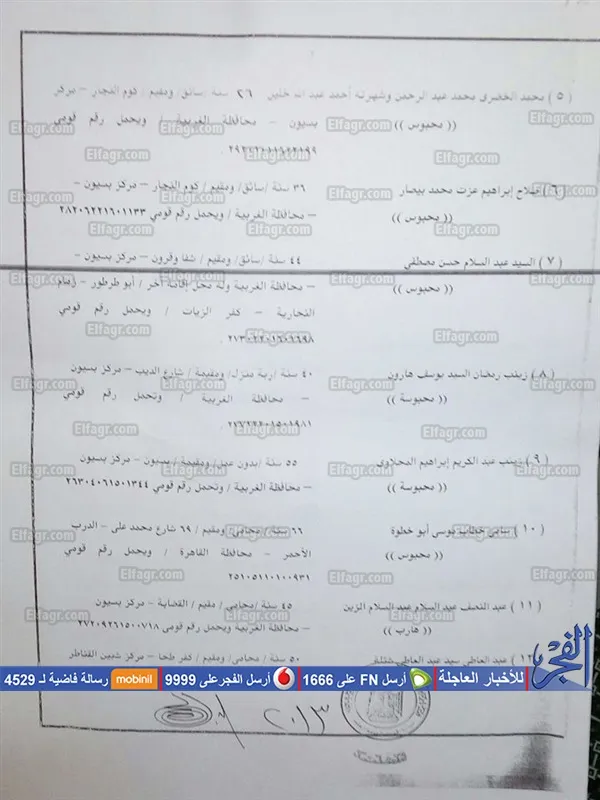 ( ٥ ) محمد الخضرى محمد عبد الرحمن وشهرته أحمد عبد الله خليل ٢٦ سنة /سائق/ ومقيم / كوم النجار – مركز
(( محبوس )) بسيون – محافظة الغربية / ويحمل رقم قومي
( ٦ ) صلاح إبراهيم عزت محمد بيصار ٣٦ سنة /سائق/ ومقيم / كوم النجار – مركز بسيون –
(( محبوس )) – محافظة الغربية / ويحمل رقم قومي ٢٨٢٠٦٢٢١٦٠١١٣٣
( ٧ ) السيد عبد السلام حسن مصطفى ٤٤ سنة /سائق/ ومقيم / شفا وقرون – مركز بسيون –
(( محبوس )) – محافظة الغربية وله محل إقامة آخر / أبو طرطور –
– كفر الزيات / ويحمل رقم قومي
٢٧٣٠٢٢٠١٦٠٢٦٩٨
( ٨ ) زينب رمضان السيد يوسف هارون ٤٠ سنة /ربة منزل/ ومقيمة / شارع الديب – مركز بسيون
(( محبوسة )) – محافظة الغربية / وتحمل رقم قومي
( ٩ ) زينب عبد الكريم إبراهيم المحلاوى ٥٥ سنة /بدون عمل/ ومقيمة / بسيون – مركز بسيون
(( محبوسة )) – محافظة الغربية / وتحمل رقم قومي ٢٦٣٠٤٠٦١٥٠١٣٤٤
( ١٠ ) سامى خطاب موسى أبو خطوة ٦٦ سنة /محامى/ ومقيم / ٦٩ شارع محمد على – الدرب
(( محبوس )) الأحمر – محافظة القاهرة / ويحمل رقم قومي
٢٥١٠٥١١٠١٠٠٩٣١
( ١١ ) عبد المنصف عبد السلام عبد السلام الزين ٤٥ سنة /محامى/ مقيم / القضابة – مركز بسيون
(( هارب )) – محافظة الغربية ويحمل رقم قومى ٢٧٢٠٩٢٦١٥٠٠٧١٨
( ١٢ عبد العاطى سيد عبد العاطى ٥٠ سنة /محامى/ ومقيم / كفر طحا – مركز شبين القناطر
الفجر للأخبار العاجلة أرسل FN على 1666 أرسل الفجر على 9999 mobinil رسالة فاضية لـ 4529
٢٠١٣
Elfagr.com